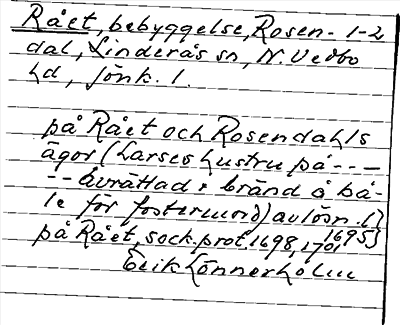 Rået, bebyggelse, Rosen- 1-2
dal, Linderås sn, N. Vedbo
hd, Jönk. l.
på Rået och Rosendahls
ägor (Larses hustru på ---
-- avrättad o bränd å bå-
le för fostermord) avlösn. (
1695)
på Rået, sock.prot. 1698, 1701
Erik Lönnerholm